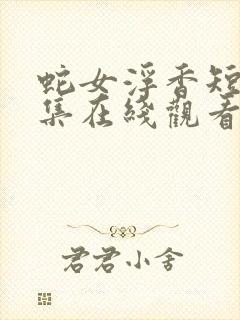 蛇女浮香短
集在綫觀看
君君小舍